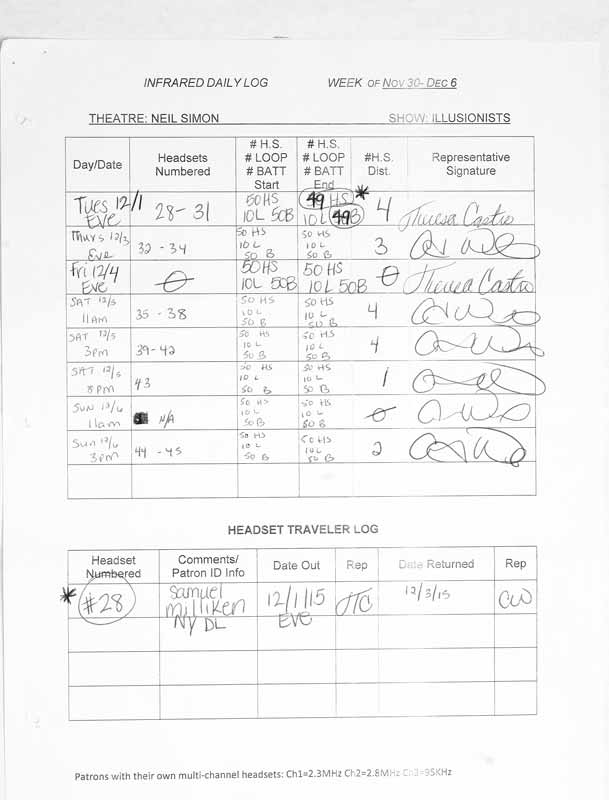 INFRARED DAILY LOG WEEK OF NOV 30- DEC 6
THEATRE: NEIL SIMON SHOW: ILLUSIONISTS
Day/Date Headsets Numbered # H.S. # LOOP # BATT Start # H.S. # LOOP # BATT End #H.S. Dist. Representative Signature
Tues 12/1 Eve 28-31 50 HS 10L 50B 49 HS 10 L 49B * 4 Theresa Castro
Thurs 12/3 Eve 32-34 50 HS 10 L 50 B 50 HS 10 L 50 B 3
Fri 12/4 Eve 0 50 HS 10L 50B 50 HS 10L 50B 0 Theresa Castro
SAT 12/5 11am 35-38 50 HS 10 L 50 B 50 HS 10 L 50 B 4
SAT 12/5 3pm 39-42 50 HS 10 L 50 B 50 HS 10 L 50 B 4
SAT 12/5 8pm 43 50 HS 10 L 50 B 50 HS 10 L 50 B 1
SUN 12/6 11am N/A 50 HS 10 L 50 B 50 HS 10 L 50 B 0
Sun 12/6 3pm 44-45 50 HS 10 L 50 B 50 HS 10 L 50 B 2
HEADSET TRAVELER LOG
Headset Numbered Comments/ Patron ID Info Date Out Rep Date Returned Rep
* #28 Samuel Milliken NY DL 12/1/15 Eve JTC 12/3/15 CW
Patrons with their own multi-channel headsets: Ch1=2.3MHz Ch2=2.8MHz Ch3=95KHz